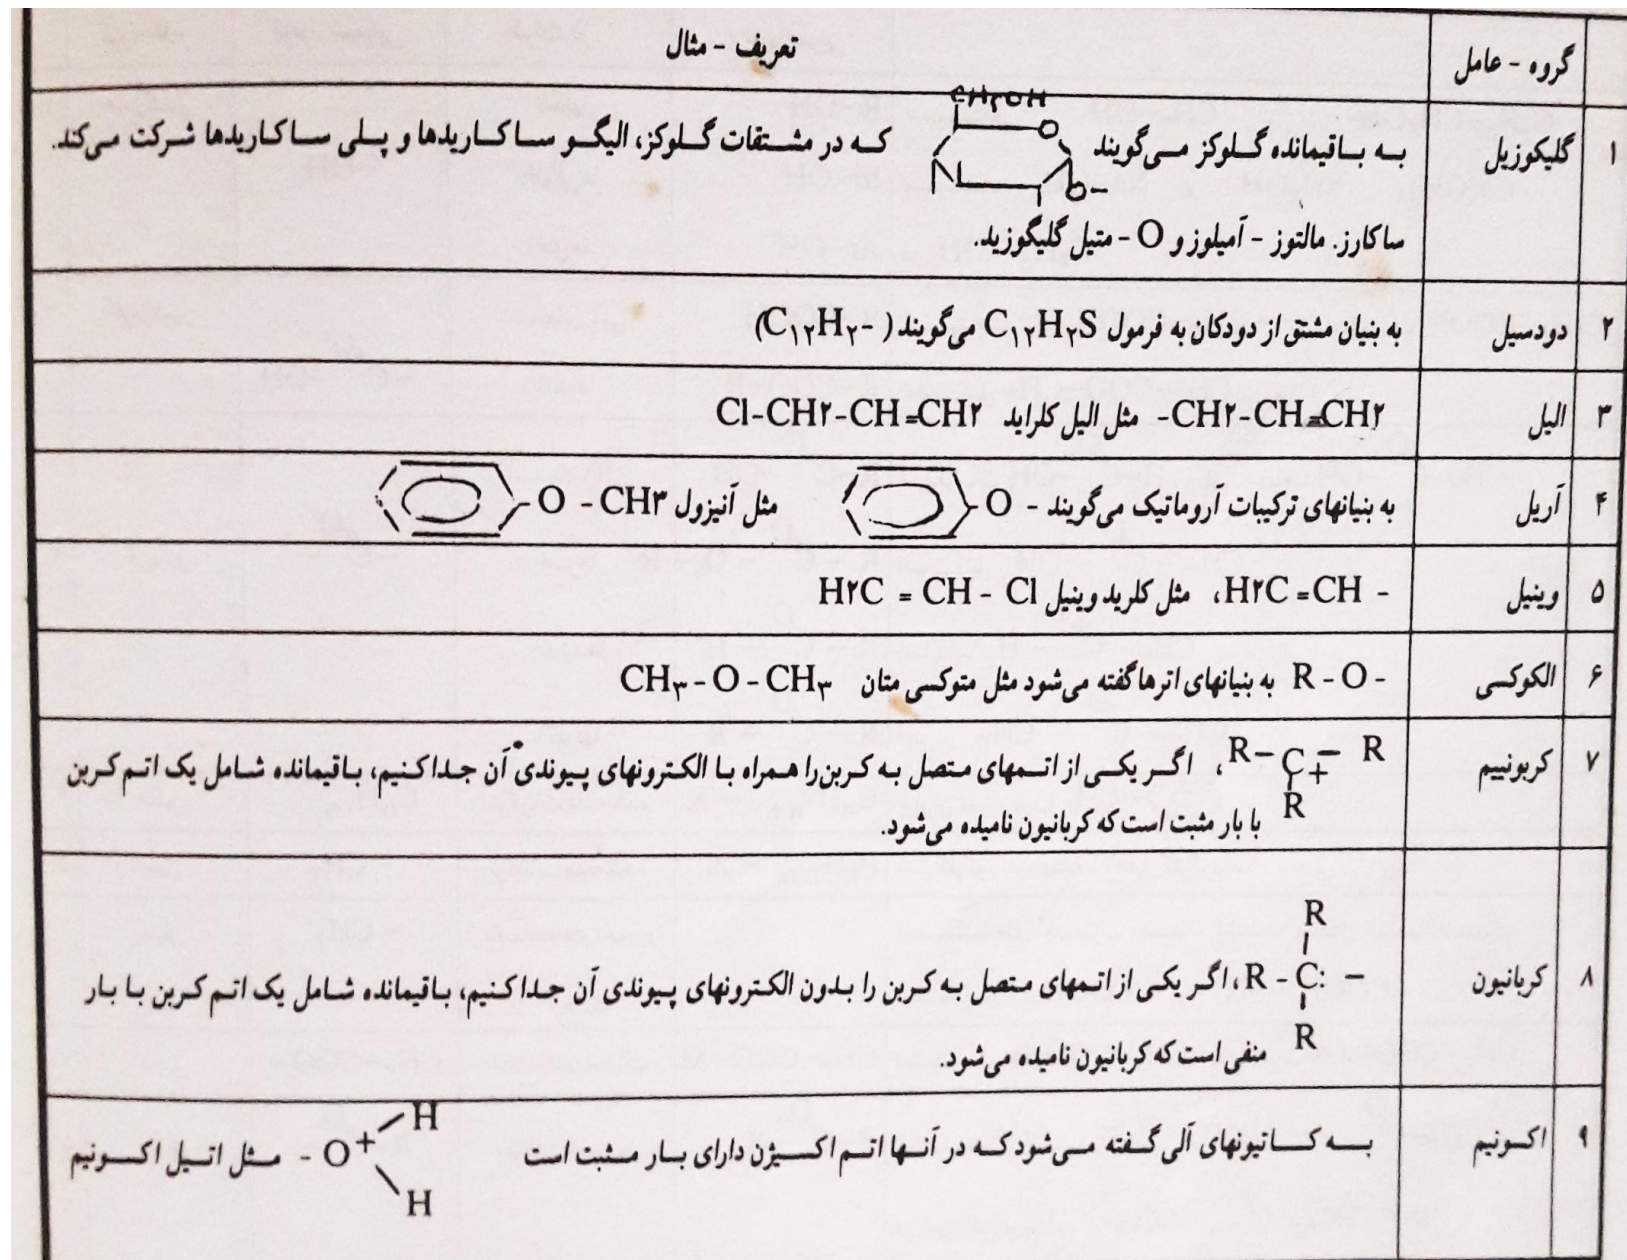 گروه - عامل تعریف - مثال
۱ گلیکوزیل به باقیمانده گلوکز می‌گویند CH۲OH O O- که در مشتقات گلوکز، الیگو ساکاریدها و پلی ساکاریدها شرکت می‌کند.
ساکارز. مالتوز - آمیلوز و O - متیل گلیگوزید.
۲ دودسیل به بنیان مشتق از دودکان به فرمول C۱۲H۲S می‌گویند (C۱۲H۲-)
۳ الیل -CH۲-CH=CH۲ مثل الیل کلراید Cl-CH۲-CH=CH۲
۴ آریل به بنیانهای ترکیبات آروماتیک می‌گویند - O - مثل آنیزول O - CH۳
۵ وینیل H۲C=CH - ، مثل کلرید وینیل H۲C = CH - Cl
۶ الکوکسی R - O - به بنیانهای اترها گفته می‌شود مثل متوکسی متان CH۳ - O - CH۳
۷ کربونییم R - C+ - R ، اگر یکی از اتمهای متصل به کربن را همراه با الکترونهای پیوندی آن جدا کنیم، باقیمانده شامل یک اتم کربن
R با بار مثبت است که کربانیون نامیده می‌شود.
R
۸ کربانیون R - C: - ، اگر یکی از اتمهای متصل به کربن را بدون الکترونهای پیوندی آن جدا کنیم، باقیمانده شامل یک اتم کربن با بار
R منفی است که کربانیون نامیده می‌شود.
H
۹ اکسونیم به کاتیونهای آلی گفته می‌شود که در آنها اتم اکسیژن دارای بار مثبت است - O+ مثل اتیل اکسونیم
H